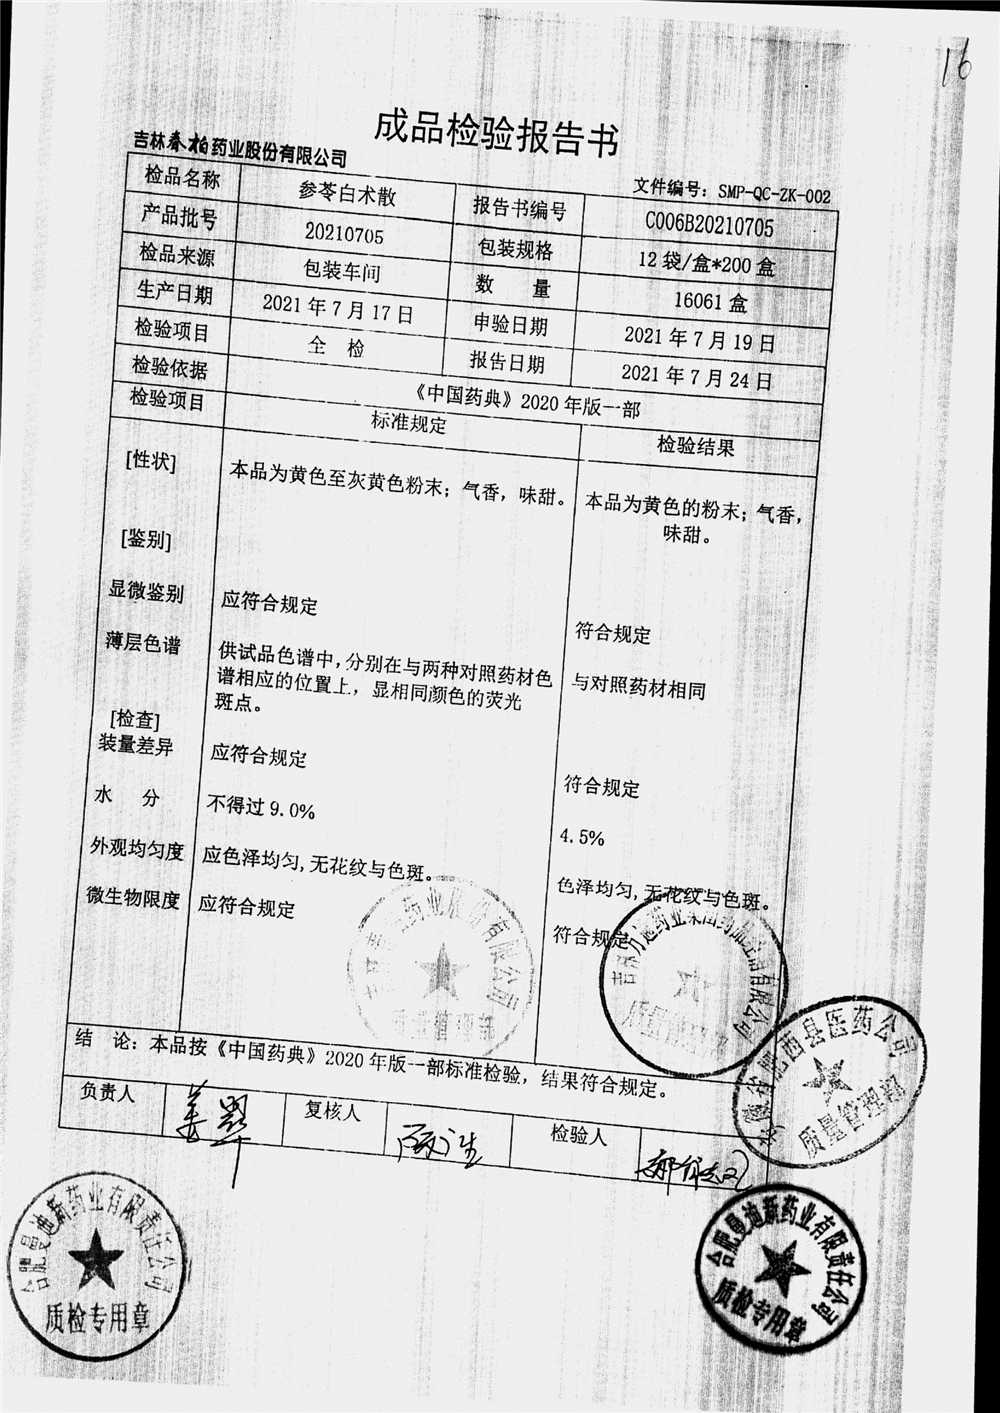 16
成品检验报告书
吉林春柏药业股份有限公司
文件编号：SMP-QC-ZK-002
检品名称 参苓白术散 报告书编号 C006B20210705
产品批号 20210705 包装规格 12袋/盒*200盒
检品来源 包装车间 数 量 16061盒
生产日期 2021年7月17日 申验日期 2021年7月19日
检验项目 全 检 报告日期 2021年7月24日
检验依据 《中国药典》2020年版一部
检验项目 标准规定 检验结果
[性状] 本品为黄色至灰黄色粉末；气香，味甜。 本品为黄色的粉末；气香，
味甜。
[鉴别]
显微鉴别 应符合规定 符合规定
薄层色谱 供试品色谱中，分别在与两种对照药材色 与对照药材相同
谱相应的位置上，显相同颜色的荧光
斑点。
[检查]
装量差异 应符合规定 符合规定
水 分 不得过9.0% 4.5%
外观均匀度 应色泽均匀，无花纹与色斑。 色泽均匀，无花纹与色斑。
微生物限度 应符合规定 符合规定
药业股份有限公司
质量管理
结 论：本品按《中国药典》2020年版一部标准检验，结果符合规定。
西县医药公司
质量管理科
负责人 复核人 检验人
合肥曼迪新药业有限责任公司
质检专用章
合肥曼迪新药业有限责任公司
质检专用章